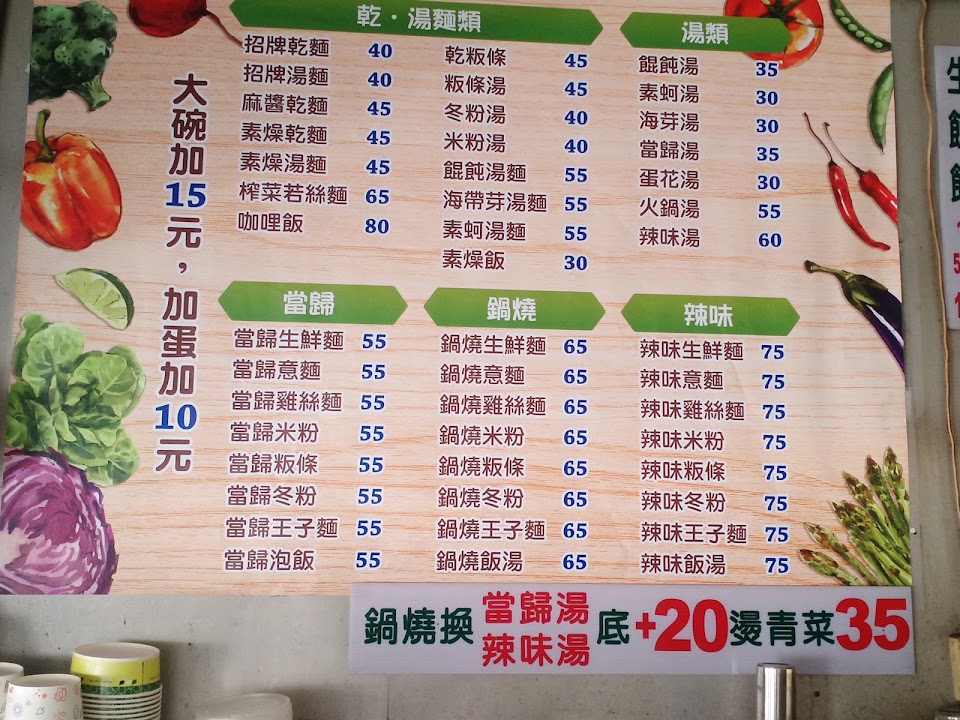 大碗加15元，加蛋加10元
乾·湯麵類
招牌乾麵 40
招牌湯麵 40
麻醬乾麵 45
素燥乾麵 45
素燥湯麵 45
榨菜若絲麵 65
咖哩飯 80
乾粄條 45
粄條湯 45
冬粉湯 40
米粉湯 40
餛飩湯麵 55
海帶芽湯麵 55
素蚵湯麵 55
素燥飯 30
湯類
餛飩湯 35
素蚵湯 30
海芽湯 30
當歸湯 35
蛋花湯 30
火鍋湯 55
辣味湯 60
當歸
當歸生鮮麵 55
當歸意麵 55
當歸雞絲麵 55
當歸米粉 55
當歸粄條 55
當歸冬粉 55
當歸王子麵 55
當歸泡飯 55
鍋燒
鍋燒生鮮麵 65
鍋燒意麵 65
鍋燒雞絲麵 65
鍋燒米粉 65
鍋燒粄條 65
鍋燒冬粉 65
鍋燒王子麵 65
鍋燒飯湯 65
辣味
辣味生鮮麵 75
辣味意麵 75
辣味雞絲麵 75
辣味米粉 75
辣味粄條 75
辣味冬粉 75
辣味王子麵 75
辣味飯湯 75
鍋燒換 當歸湯 辣味湯 底+20燙青菜35